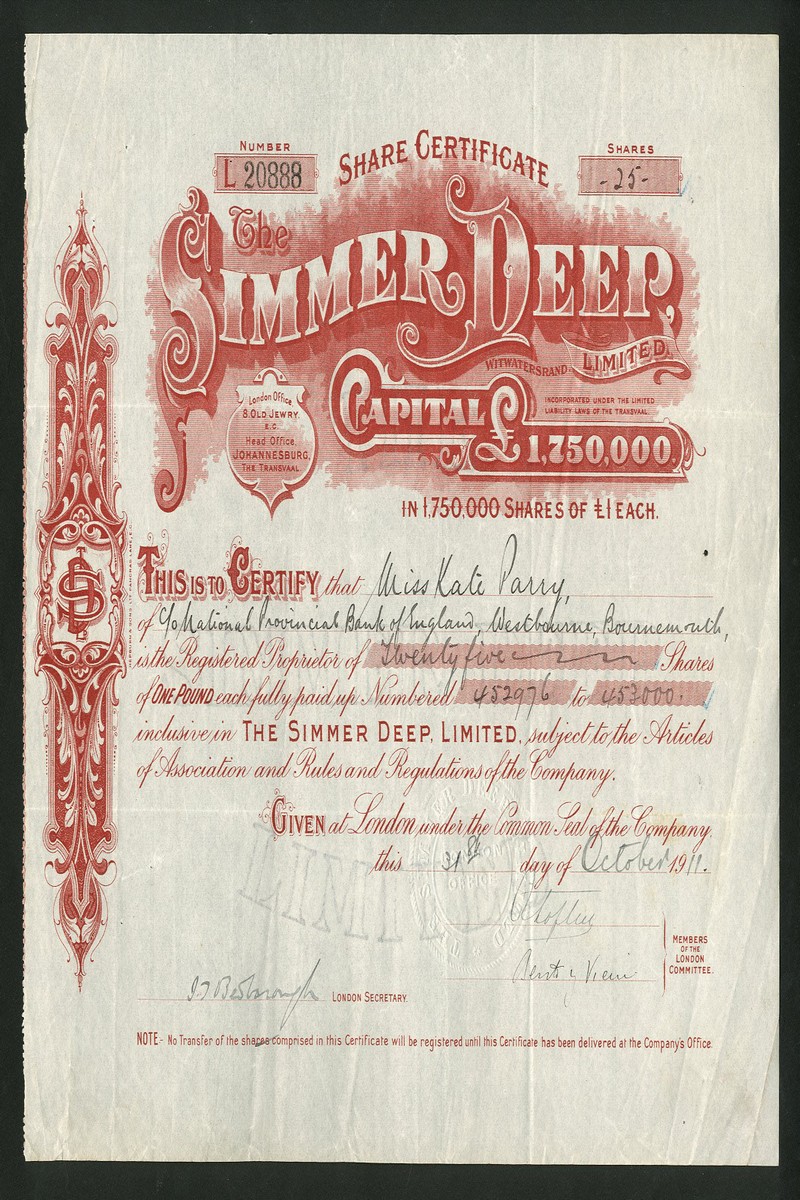 NUMBER
L 20888
SHARE CERTIFICATE
SHARES
-25-
The
SIMMER DEEP,
WITWATERSRAND.
LIMITED.
London Office,
8, OLD JEWRY,
E.C.
Head Office,
JOHANNESBURG,
THE TRANSVAAL
CAPITAL £1,750,000.
INCORPORATED UNDER THE LIMITED
LIABILITY LAWS OF THE TRANSVAAL.
IN 1,750,000 SHARES OF £1 EACH.
THIS IS TO CERTIFY that Miss Kate Parry,
of c/o National Provincial Bank of England, Westbourne, Bournemouth,
is the Registered Proprietor of Twenty five Shares
of ONE POUND each fully paid up Numbered 452976 to 453000.
inclusive in THE SIMMER DEEP, LIMITED, subject to the Articles
of Association and Rules and Regulations of the Company.
GIVEN at London under the Common Seal of the Company.
this 31st day of October 1911.
MEMBERS
OF THE
LONDON
COMMITTEE.
LONDON SECRETARY.
NOTE- No Transfer of the shares comprised in this Certificate will be registered until this Certificate has been delivered at the Company's Office.
LIMITED